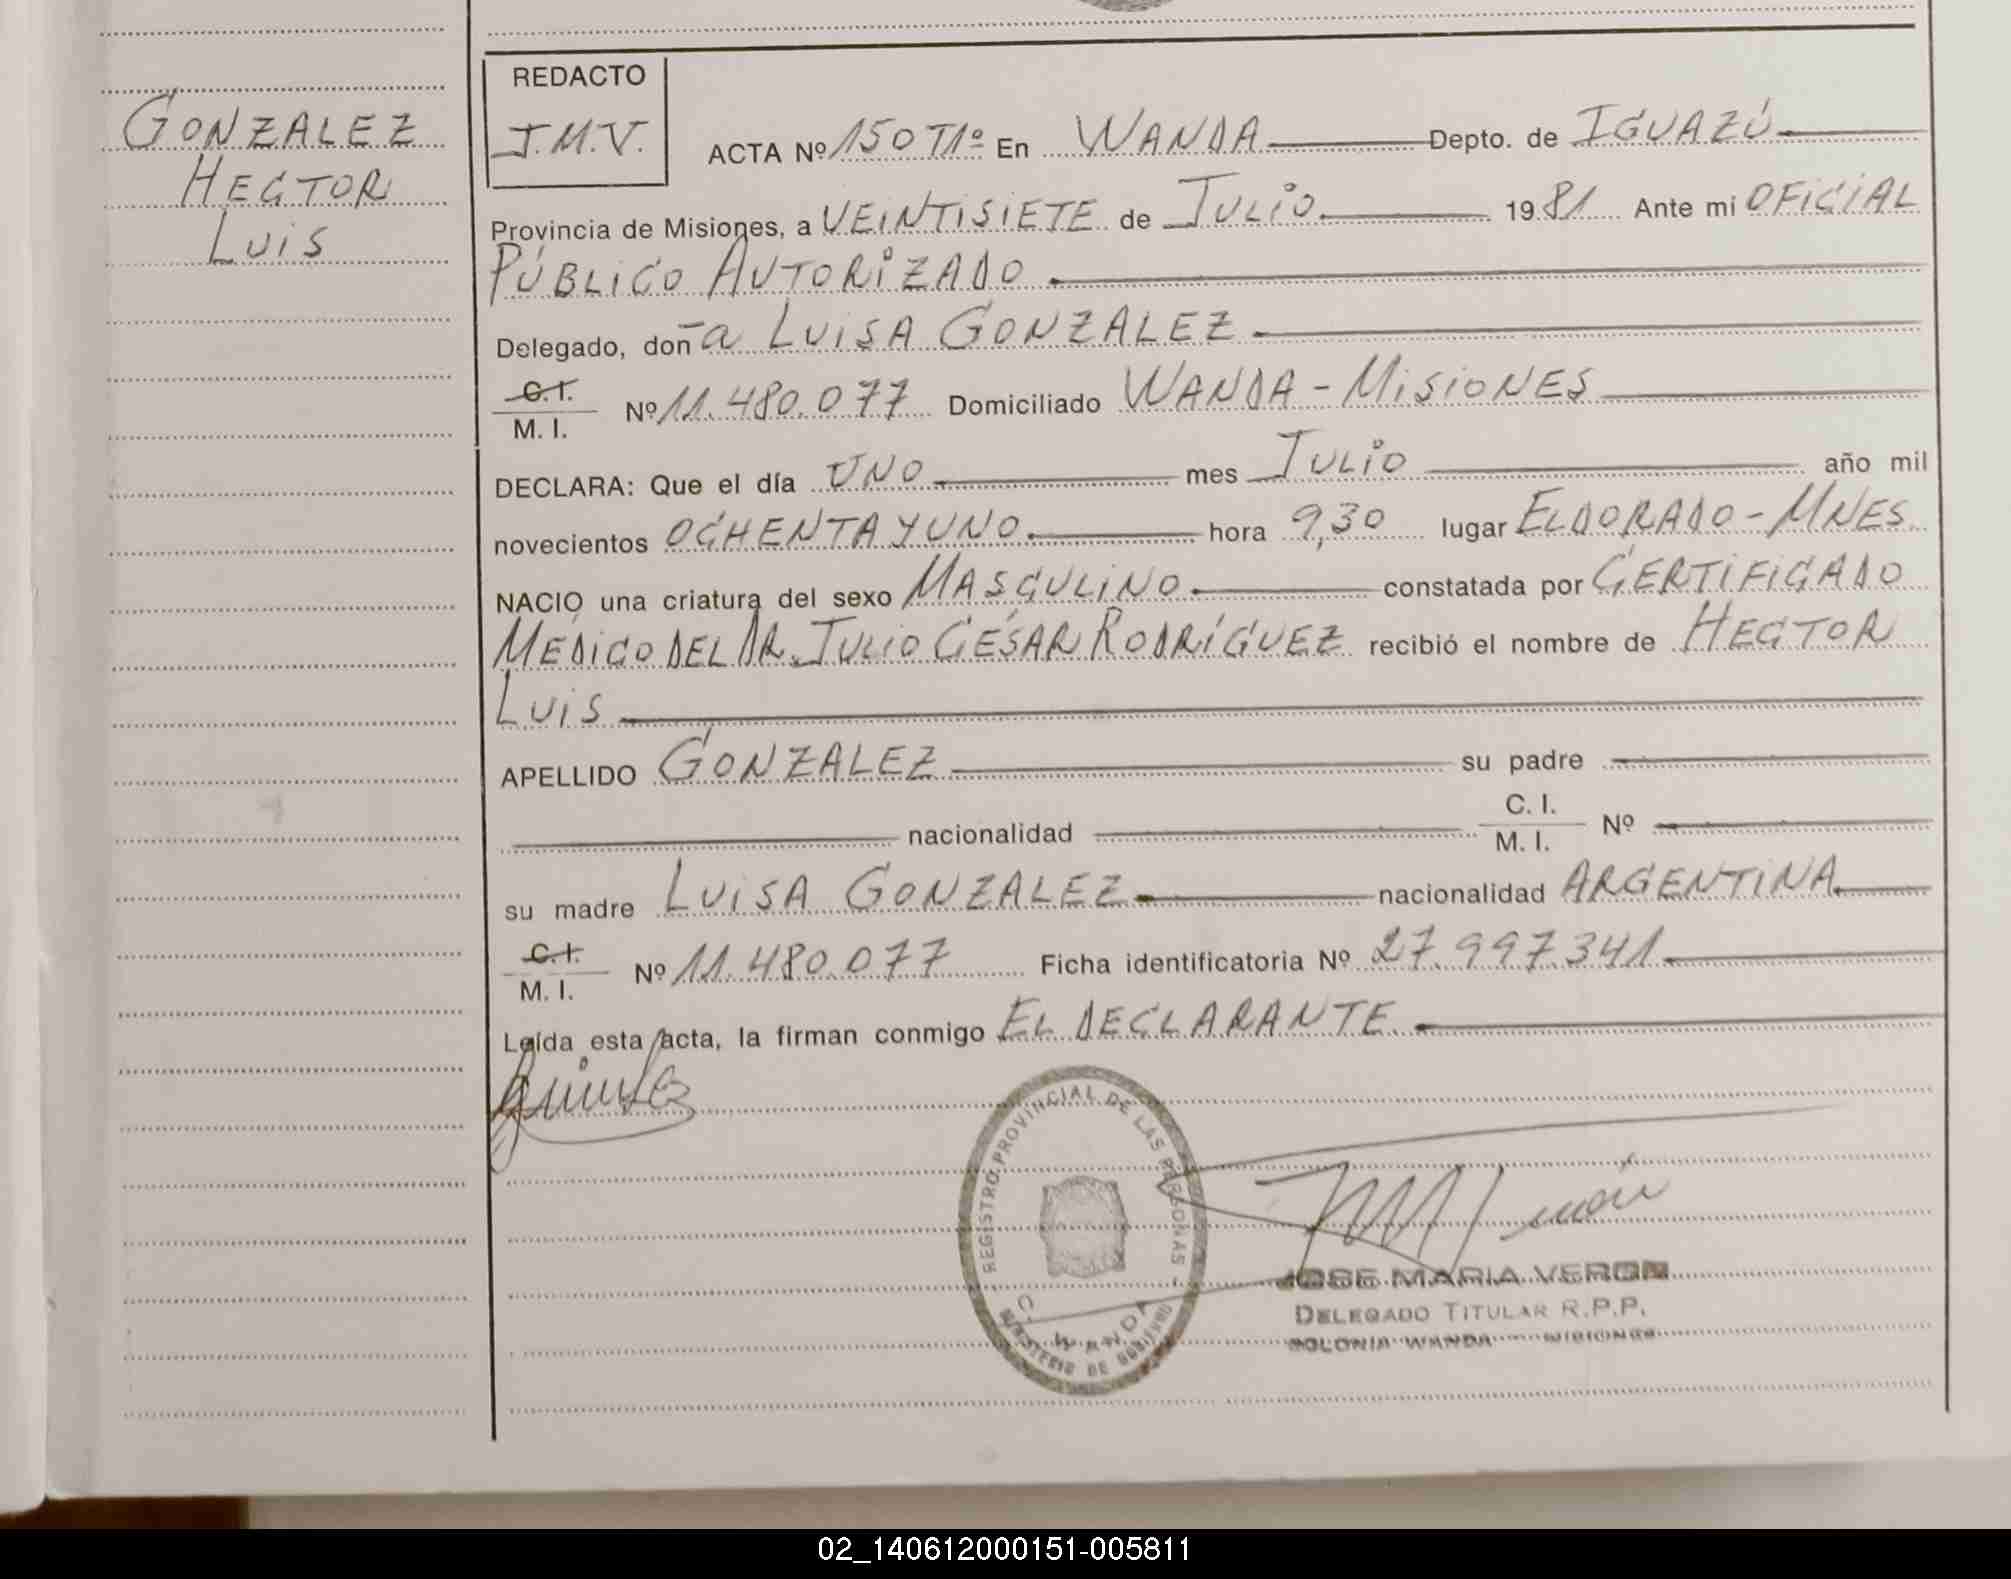 GONZALEZ
HECTOR
LUIS
REDACTO
J.M.V.
ACTA Nº 150 T1º En WANDA Depto. de IGUAZÚ
Provincia de Misiones, a VEINTISIETE de JULIO 1981 Ante mi OFICIAL
PÚBLICO AUTORIZADO
Delegado, don-a LUISA GONZALEZ
C.I.
M. I. Nº 11.480.077 Domiciliado WANDA - MISIONES
DECLARA: Que el día UNO mes JULIO año mil
novecientos OCHENTA Y UNO hora 9,30 lugar ELDORADO - MNES
NACIO una criatura del sexo MASCULINO constatada por CERTIFICADO
MÉDICO DEL DR. JULIO CÉSAR RODRÍGUEZ recibió el nombre de HECTOR
LUIS
APELLIDO GONZALEZ su padre
nacionalidad C. I.
M. I. Nº
su madre LUISA GONZALEZ nacionalidad ARGENTINA
C.I.
M. I. Nº 11.480.077 Ficha identificatoria Nº 27.997.341
Leída esta acta, la firman conmigo EL DECLARANTE
REGISTRO PROVINCIAL DE LAS PERSONAS
C. WANDA
MINISTERIO DE GOBIERNO
JOSE MARIA VERON
DELEGADO TITULAR R.P.P.
COLONIA WANDA - MISIONES
02_140612000151-005811